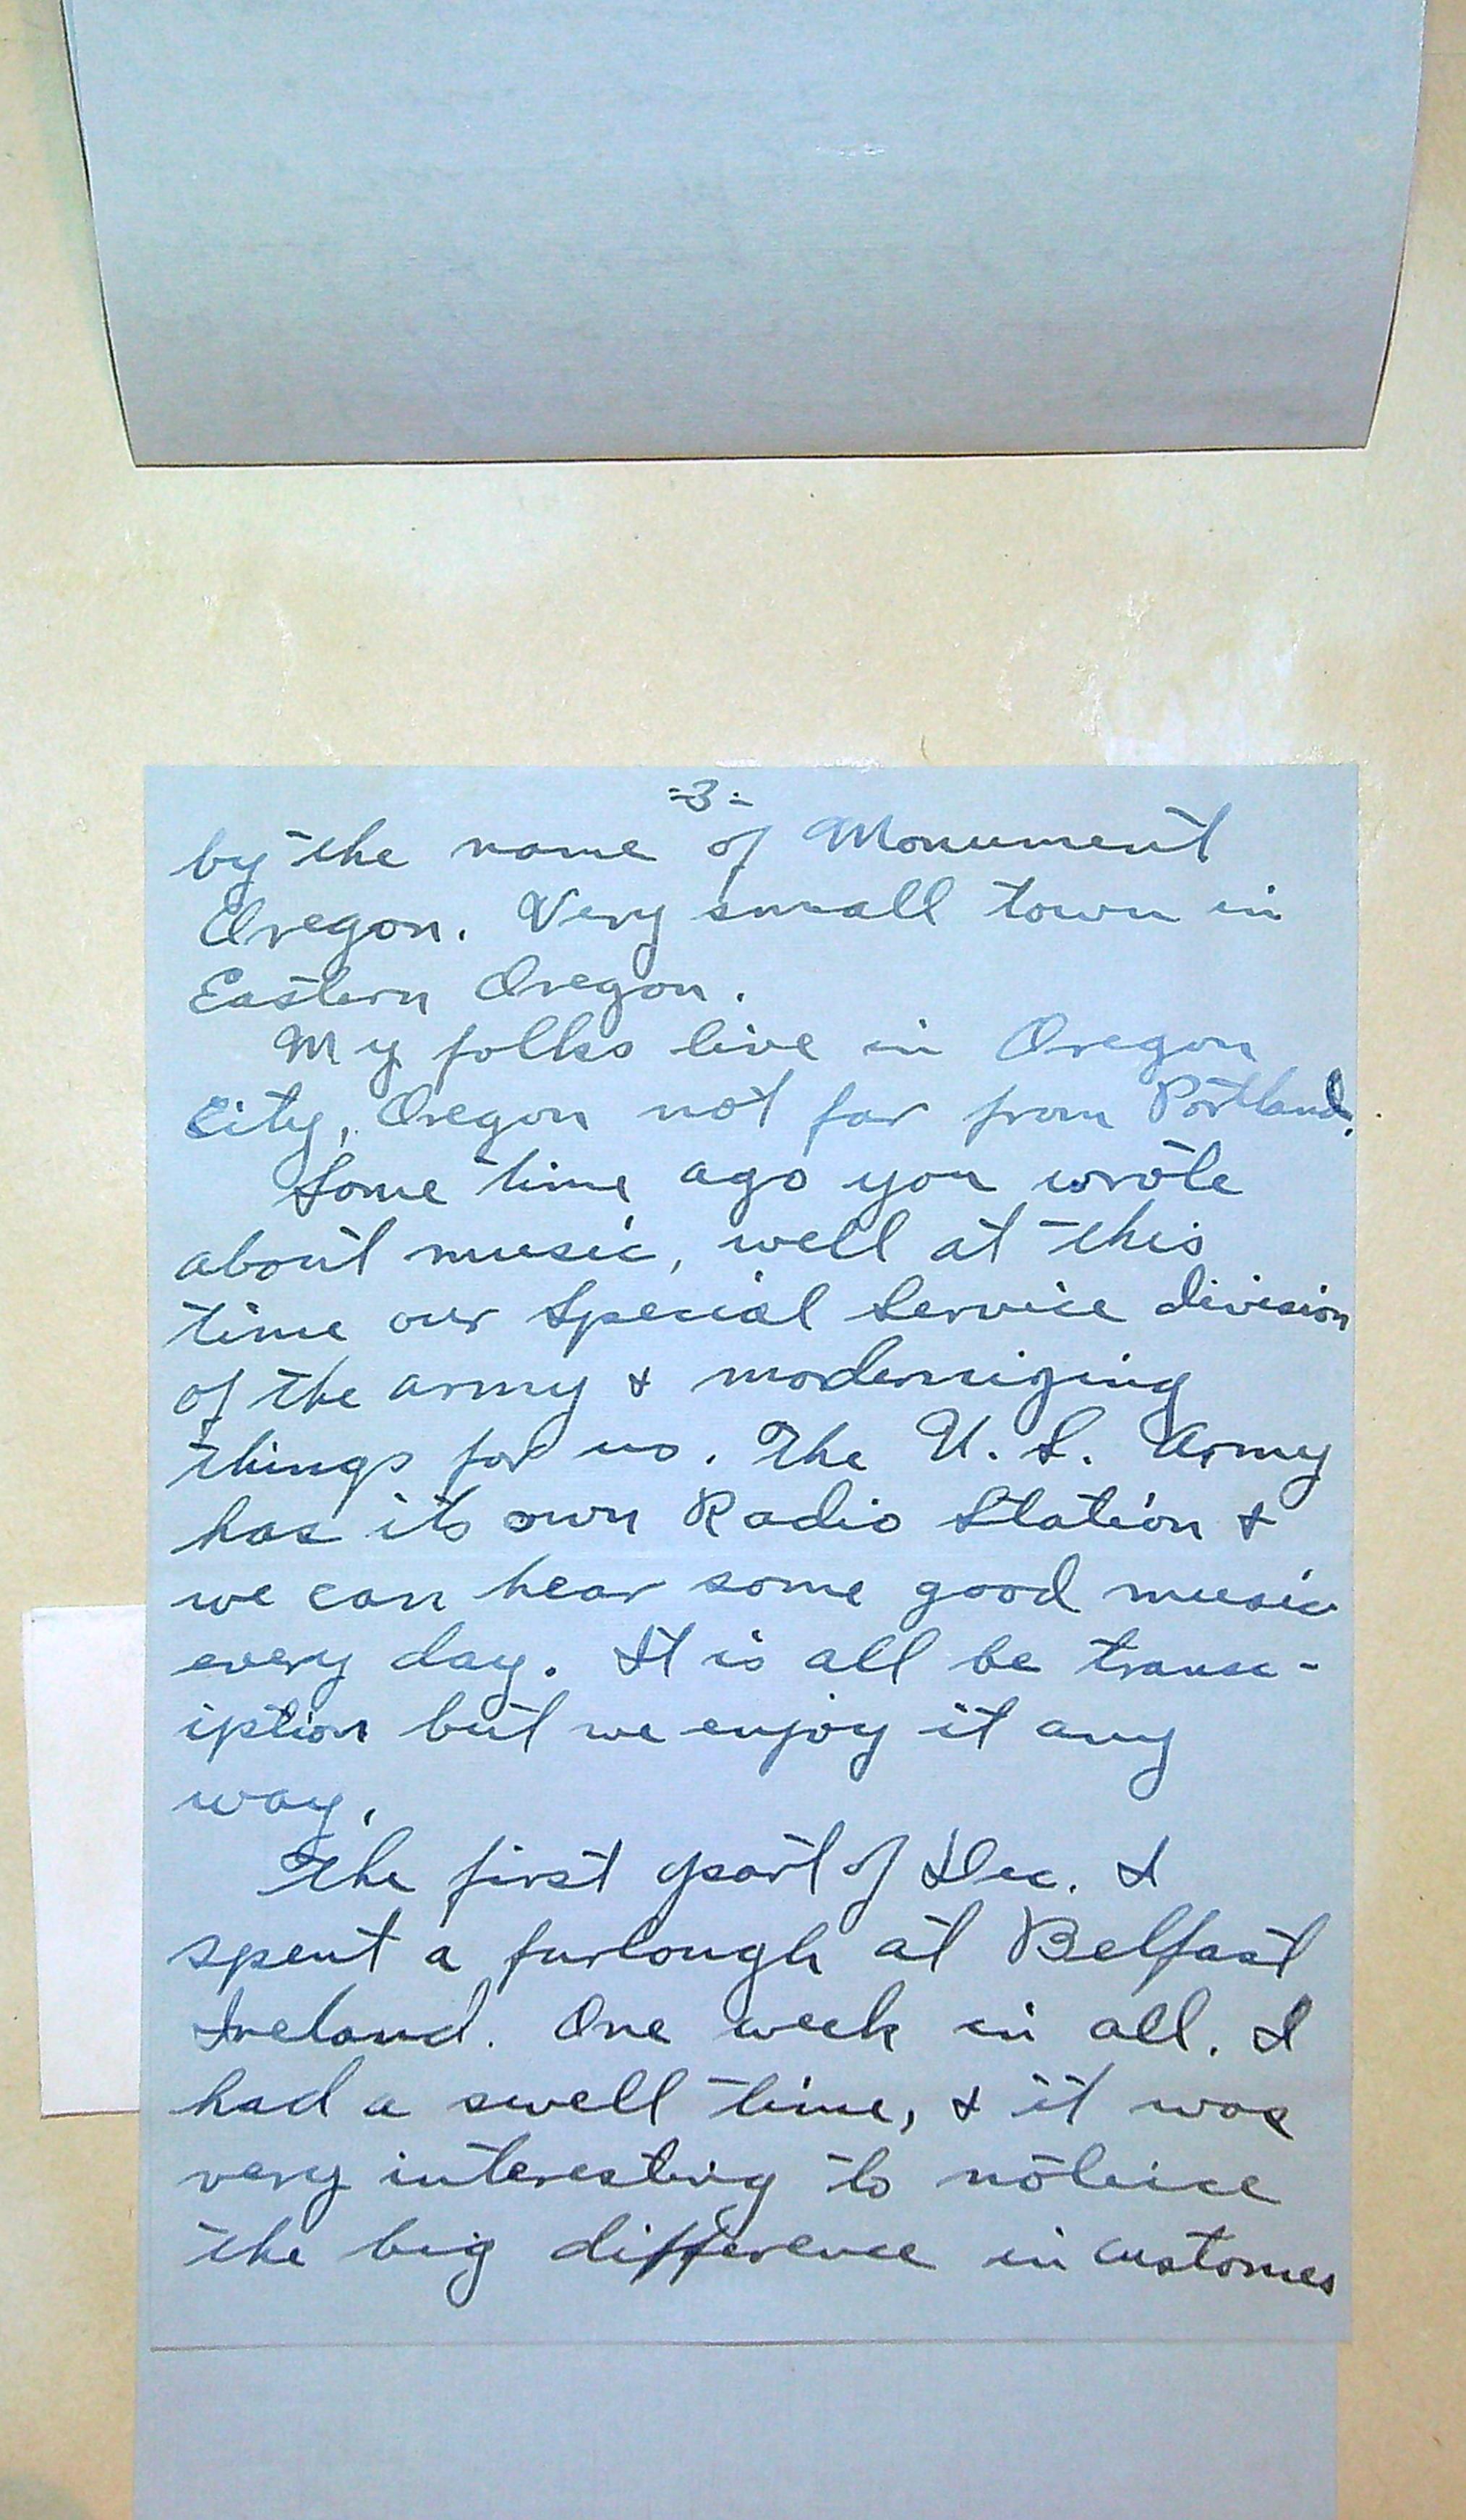 -3-
by the name of Monument
Oregon. Very small town in
Eastern Oregon.
My folks live in Oregon
City, Oregon not far from Portland.
Some time ago you wrote
about music, well at this
time our Special Service division
of the army & modernizing
things for us. The U. S. Army
has its own Radio Station &
we can hear some good music
every day. It is all be transc-
iption but we enjoy it any
way.
The first part of Dec. I
spent a furlough at Belfast
Ireland. One week in all. I
had a swell time, & it was
very interesting to noteice
the big difference in customes